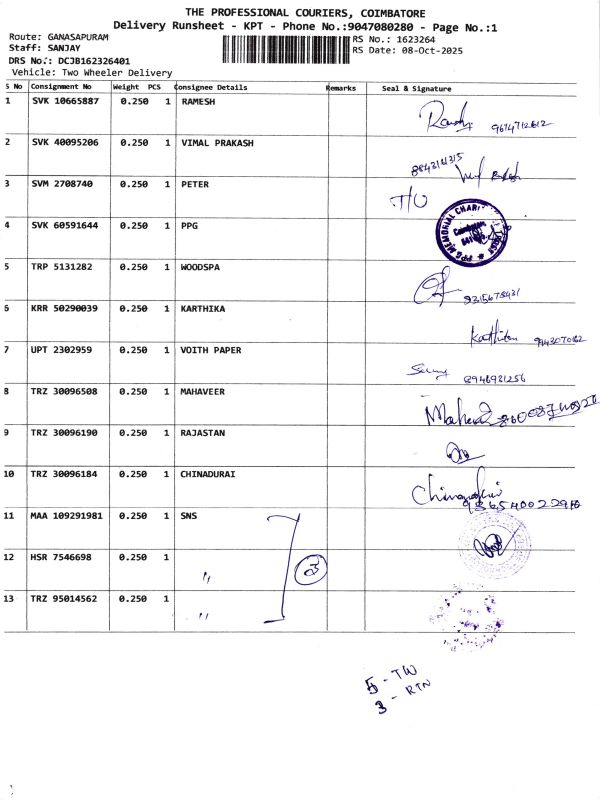 THE PROFESSIONAL COURIERS, COIMBATORE
Delivery Runsheet - KPT - Phone No.:9047080280 - Page No.:1
Route: GANASAPURAM
RS No.: 1623264
Staff: SANJAY
RS Date: 08-Oct-2025
DRS No.: DCJB162326401
Vehicle: Two Wheeler Delivery
S No Consignment No Weight PCS Consignee Details Remarks Seal & Signature
1 SVK 10665887 0.250 1 RAMESH
2 SVK 40095206 0.250 1 VIMAL PRAKASH
3 SVM 2708740 0.250 1 PETER T/O
4 SVK 60591644 0.250 1 PPG
PPG MEMORIAL
5 TRP 5131282 0.250 1 WOODSPA
6 KRR 50290039 0.250 1 KARTHIKA
7 UPT 2302959 0.250 1 VOITH PAPER
8946931256
8 TRZ 30096508 0.250 1 MAHAVEER
9 TRZ 30096190 0.250 1 RAJASTAN
10 TRZ 30096184 0.250 1 CHINADURAI
11 MAA 109291981 0.250 1 SNS
12 HSR 7546698 0.250 1 " 3
13 TRZ 95014562 0.250 1 "
5 - TW
3 - RTN